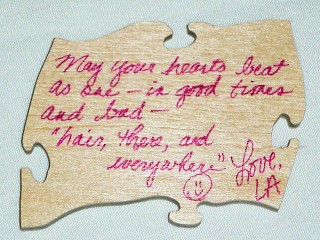 May your hearts beat
as one - in good times
and bad -
"hair, there, and
everywhere"
Love,
LA